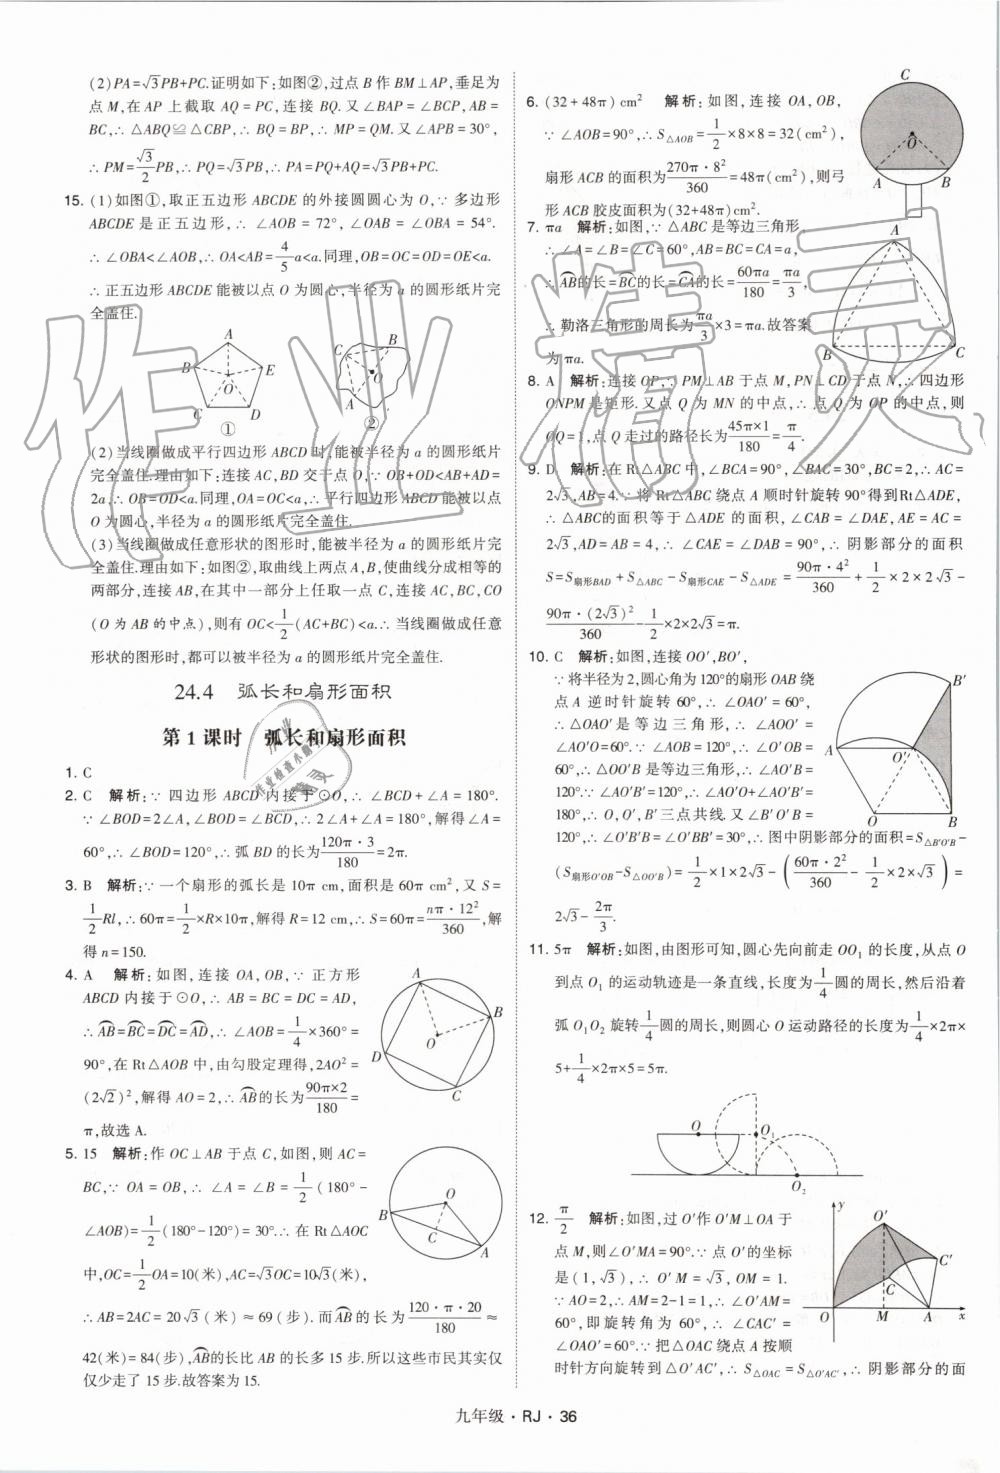 (2)PA=√3PB+PC.证明如下:如图②,过点 B 作 BM⊥AP,垂足为
点 M,在 AP 上截取 AQ=PC,连接 BQ.又∠BAP=∠BCP,AB=
BC,∴△ABQ≌△CBP,∴BQ=BP,∴MP=QM.又∠APB=30°,
∴PM=√3/2PB,∴PQ=√3PB,∴PA=PQ+AQ=√3PB+PC.
15. (1)如图①,取正五边形 ABCDE 的外接圆圆心为 O,∵多边形
ABCDE 是正五边形,∴∠AOB=72°,∠OAB=∠OBA=54°.
∴∠OBA<∠AOB,∴OA<AB=4/5a<a.同理,OB=OC=OD=OE<a.
∴正五边形 ABCDE 能被以点 O 为圆心,半径为 a 的圆形纸片完
全盖住.
A
B
E
O
C
D
①
C
B
O
A
②
(2)当线圈做成平行四边形 ABCD 时,能被半径为 a 的圆形纸片
完全盖住.理由如下:连接 AC,BD 交于点 O,∵OB+OD<AB+AD=
2a,∴OB=OD<a.同理,OA=OC<a,∴平行四边形 ABCD 能被以点
O 为圆心,半径为 a 的圆形纸片完全盖住.
(3)当线圈做成任意形状的图形时,能被半径为 a 的圆形纸片完
全盖住.理由如下:如图②,取曲线上两点 A,B,使曲线分成相等的
两部分,连接 AB,在其中一部分上任取一点 C,连接 AC,BC,CO
(O 为 AB 的中点),则有 OC<1/2(AC+BC)<a.∴当线圈做成任意
形状的图形时,都可以被半径为 a 的圆形纸片完全盖住.
24.4 弧长和扇形面积
第 1 课时 弧长和扇形面积
1. C
2. C 解析:∵四边形 ABCD 内接于⊙O,∴∠BCD+∠A=180°.
∵∠BOD=2∠A,∠BOD=∠BCD,∴2∠A+∠A=180°,解得∠A=
60°,∴∠BOD=120°,∴弧 BD 的长为120π·3/180=2π.
3. B 解析:∵一个扇形的弧长是 10π cm,面积是 60π cm²,又 S=
1/2Rl,∴60π=1/2×R×10π,解得 R=12 cm,∴S=60π=nπ·12²/360,解
得 n=150.
4. A 解析:如图,连接 OA,OB,∵正方形
ABCD 内接于⊙O,∴AB=BC=DC=AD,
∴AB⌒=BC⌒=DC⌒=AD⌒,∴∠AOB=1/4×360°=
90°,在 Rt△AOB 中,由勾股定理得,2AO²=
(2√2)²,解得 AO=2,∴AB⌒的长为90π×2/180=
π,故选 A.
A
B
O
D
C
5. 15 解析:作 OC⊥AB 于点 C,如图,则 AC=
BC,∵OA=OB,∴∠A=∠B=1/2(180°-
∠AOB)=1/2(180°-120°)=30°.∴在 Rt△AOC
中,OC=1/2OA=10(米),AC=√3OC=10√3(米),
∴AB=2AC=20√3(米)≈69(步).而AB⌒的长为120·π·20/180≈
42(米)=84(步),AB⌒的长比 AB 的长多 15 步.所以这些市民其实仅
仅少走了 15 步.故答案为 15.
O
B
C
A
6. (32+48π)cm² 解析:如图,连接 OA,OB,
∵∠AOB=90°,∴S△AOB=1/2×8×8=32(cm²),
扇形 ACB 的面积为270π·8²/360=48π(cm²),则弓
形 ACB 胶皮面积为(32+48π)cm².
C
O
A
B
7. πa 解析:如图.∵△ABC 是等边三角形,
∴∠A=∠B=∠C=60°,AB=BC=CA=a,
∴AB⌒的长=BC⌒的长=CA⌒的长=60πa/180=πa/3,
∴勒洛三角形的周长为πa/3×3=πa.故答案
为 πa.
A
B
C
8. A 解析:连接 OP,∵PM⊥AB 于点 M,PN⊥CD 于点 N,∴四边形
ONPM 是矩形.又点 Q 为 MN 的中点,∴点 Q 为 OP 的中点,则
OQ=1,点 Q 走过的路径长为45π×1/180=π/4.
9. D 解析:在 Rt△ABC 中,∠BCA=90°,∠BAC=30°,BC=2,∴AC=
2√3,AB=4.∵将 Rt△ABC 绕点 A 顺时针旋转 90°得到Rt△ADE,
∴△ABC的面积等于△ADE 的面积,∠CAB=∠DAE,AE=AC=
2√3,AD=AB=4,∴∠CAE=∠DAB=90°,∴阴影部分的面积
S=S扇形BAD+S△ABC-S扇形CAE-S△ADE=90π·4²/360+1/2×2×2√3-
90π·(2√3)²/360-1/2×2×2√3=π.
10. C 解析:如图,连接 OO′,BO′,
∵将半径为 2,圆心角为 120°的扇形 OAB 绕
点 A 逆时针旋转 60°,∴∠OAO′=60°,
∴△OAO′是等边三角形,∴∠AOO′=
∠AO′O=60°.∵∠AOB=120°,∴∠O′OB=
60°,∴△OO′B 是等边三角形,∴∠OO′B=
120°.∵∠AO′B′=120°,∴∠AO′B′+∠AO′B=
120°,∴O,O′,B′三点共线.又∠B′O′B=
120°,∴∠O′B′B=∠O′BB′=30°,∴图中阴影部分的面积=S△B′O′B-
(S扇形O′OB-S△OO′B)=1/2×1×2√3-(60π·2²/360-1/2×2×√3)=
2√3-2π/3.
B′
A
O′
O
B
11. 5π 解析:如图,由图形可知,圆心先向前走 OO₁ 的长度,从点 O
到点 O₁ 的运动轨迹是一条直线,长度为1/4圆的周长,然后沿着
弧 O₁O₂ 旋转1/4圆的周长,则圆心 O 运动路径的长度为1/4×2π×
5+1/4×2π×5=5π.
O
O₁
O₂
12. π/2 解析:如图,过 O′作 O′M⊥OA 于
点 M,则∠O′MA=90°.∵点 O′的坐标
是(1,√3),∴O′M=√3,OM=1.
∵AO=2,∴AM=2-1=1,∴∠O′AM=
60°,即旋转角为 60°,∴∠CAC′=
∠OAO′=60°.∵把△OAC 绕点 A 按顺
时针方向旋转到△O′AC′,∴S△OAC=S△O′AC′,∴阴影部分的面
y
O′
C′
C
O
M
A
x
九年级·RJ·36
作业精灵